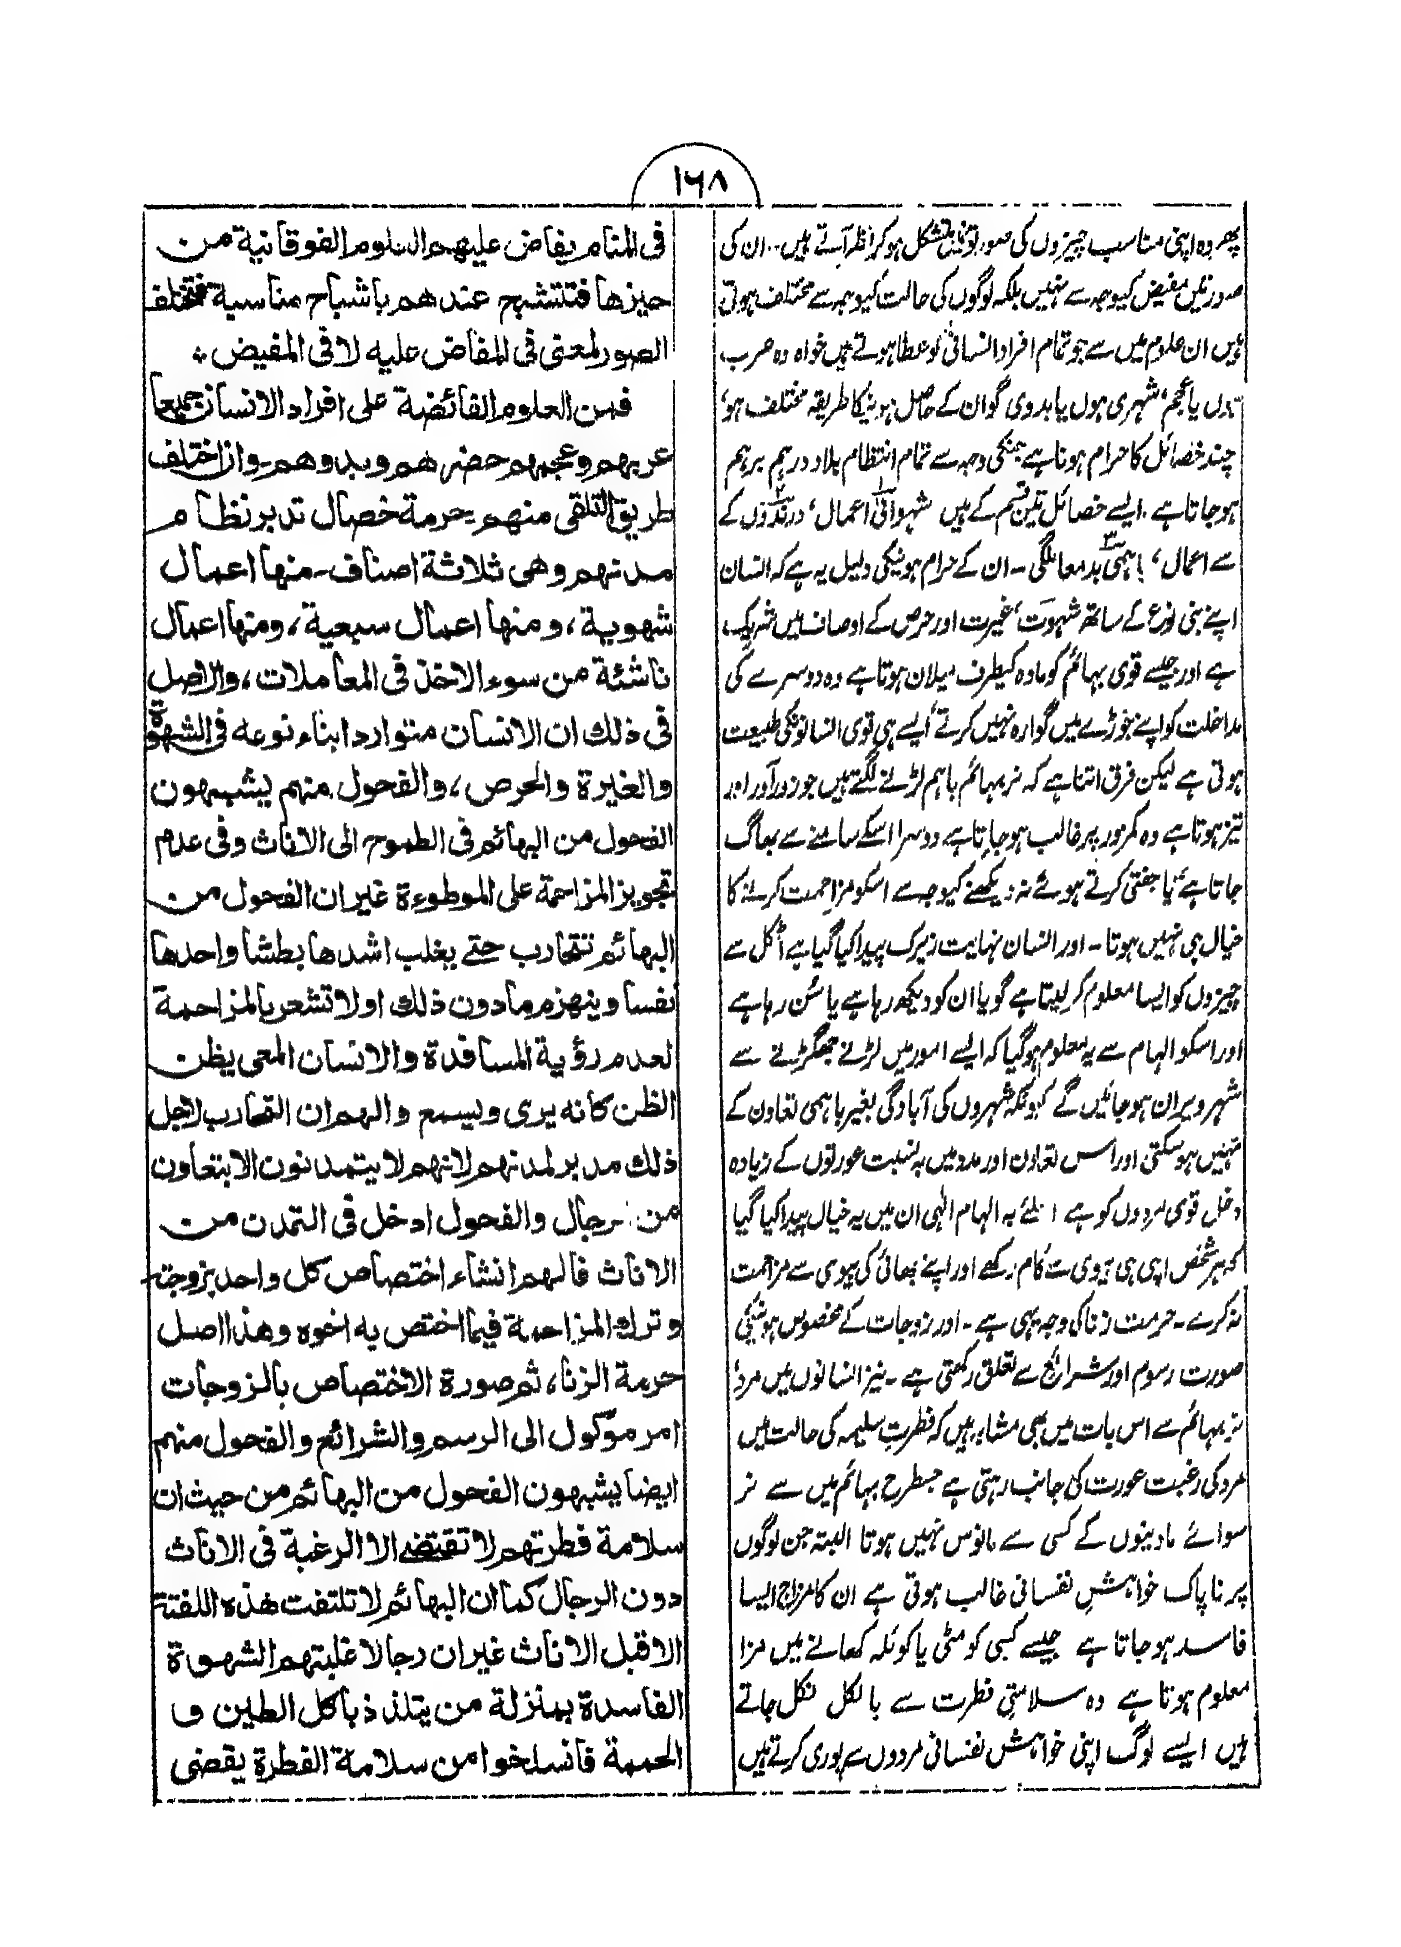 ۱۶۸
پھر وہ اپنی مناسب چیزوں کی صورتوں میں متشکل ہو کر نظر آتے ہیں۔ ان کی
صورتیں مفیض کیوجہ سے نہیں بلکہ لوگوں کی حالت کیوجہ سے مختلف ہوتی
ہیں ان علوم میں سے جو تمام افراد انسانی کو عطا ہوتے ہیں خواہ وہ عرب
ہوں یا عجم، شہری ہوں یا بدوی گو ان کے حاصل ہونیکا طریقہ مختلف ہو،
چند خصائل کا حرام ہونا ہے جنکی وجہ سے تمام انتظام بلاد درہم برہم
ہو جاتا ہے۔ ایسے خصائل تین قسم کے ہیں شہوانی اعمال، درندوں کے
سے اعمال، باہمی بد معاملگی۔ ان کے حرام ہونیکی دلیل یہ ہے کہ انسان
اپنے بنی نوع کے ساتھ شہوت، غیرت اور حرص کے اوصاف میں شریک
ہے اور جیسے قوی بہائم کو مادہ کیطرف میلان ہوتا ہے وہ دوسرے کی
مداخلت کو اپنے جوڑے میں گوارہ نہیں کرتے، ایسے ہی قوی انسانونکی طبیعت
ہوتی ہے لیکن فرق اتنا ہے کہ نر بہائم باہم لڑنے لگتے ہیں جو زور آور اور
تیز ہوتا ہے وہ کمزور پر غالب ہو جاتا ہے دوسرا اسکے سامنے سے بھاگ
جاتا ہے، یا جفتی کرتے ہوئے نہ دیکھنے کیوجہ سے اسکو مزاحمت کرنے کا
خیال ہی نہیں ہوتا۔ اور انسان نہایت زیرک پیدا کیا گیا ہے اٹکل سے
چیزوں کو ایسا معلوم کر لیتا ہے گویا ان کو دیکھ رہا ہے یا سن رہا ہے
اور اسکو الہام سے یہ معلوم ہو گیا کہ ایسے امور میں لڑنے جھگڑنے سے
شہر ویران ہو جائیں گے کیونکہ شہروں کی آبادگی بغیر باہمی تعاون کے
نہیں ہو سکتی اور اس تعاون اور مدد میں بہ نسبت عورتوں کے زیادہ
دخل قوی مردوں کو ہے اسلئے بہ الہام الٰہی ان میں یہ خیال پیدا کیا گیا
کہ ہر شخص اپنی ہی بیوی سے کام رکھے اور اپنے بھائی کی بیوی سے مزاحمت
نہ کرے۔ حرمت زنا کی وجہ یہی ہے۔ اور زوجات کے مخصوص ہونیکی
صورت رسوم اور شرائع سے تعلق رکھتی ہے۔ نیز انسانوں میں مرد،
نر بہائم سے اس بات میں بھی مشابہ ہیں کہ فطرت سلیمہ کی حالت میں
مرد کی رغبت عورت کی جانب رہتی ہے جسطرح بہائم میں سے نر
سوائے مادینوں کے کسی سے مانوس نہیں ہوتا البتہ جن لوگوں
پر ناپاک خواہش نفسانی غالب ہوتی ہے ان کا مزاج ایسا
فاسد ہو جاتا ہے جیسے کسی کو مٹی یا کوئلہ کھانے میں مزا
معلوم ہوتا ہے وہ سلامتی فطرت سے بالکل نکل جاتے
ہیں ایسے لوگ اپنی خواہش نفسانی مردوں سے پوری کرتے ہیں
فی المنام یفاض علیہم العلوم الفوقانیة من
حیزھا فتتشبح عندھم باشباح مناسبة فتختلف
الصور لمعنی فی المفاض علیہ لا فی المفیض ۰
فمن العلوم الفائضة علی افراد الانسان جمیعا
عربہم وعجمہم حضرھم وبدوھم۔ وان اختلف
طریق التلقی منہم۔ حرمة خصال تدبر نظام
مدنہم وھی ثلاثة اصناف۔ منہا اعمال
شھویة، ومنہا اعمال سبعیة، ومنہا اعمال
ناشئة من سوء الاخذ فی المعاملات، والاصل
فی ذلک ان الانسان متوارد ابناء نوعہ فی الشھوة
والغیرة والحرص، والفحول منہم یشبہون
الفحول من البہائم فی الطموح الی الاناث وفی عدم
تجویز المزاحمة علی الموطوءة غیر ان الفحول من
البہائم تتحارب حتے یغلب اشدھا بطشا واحدھا
نفسا وینہزم مادون ذلک او لا تشعر بالمزاحمة
لعدم رؤیة المسافدة والانسان المعی یظن
الظن کانہ یری ویسمع والہم ان التحارب لاجل
ذلک مدبر لمدنہم لانہم لا یتمدنون الا بتعاون
من رجال والفحول ادخل فی التمدن من
الاناث فالہم انشاء اختصاص کل واحد بزوجتہ
وترک المزاحمة فیما اختص بہ اخوہ وھذا اصل
حرمة الزنا، ثم صورة الاختصاص بالزوجات
امر موکول الی الرسم والشرائع والفحول منہم
ایضا یشبہون الفحول من البہائم من حیث ان
سلامة فطرتہم لا تقتضے الا الرغبة فی الاناث
دون الرجال کما ان البہائم لا تلتفت ھذہ اللفتة
الا قبل الاناث غیر ان رجالا غلبتہم الشھوة
الفاسدة بمنزلة من یتلذذ باکل الطین و
الحممة فانسلخوا من سلامة الفطرة یقضی